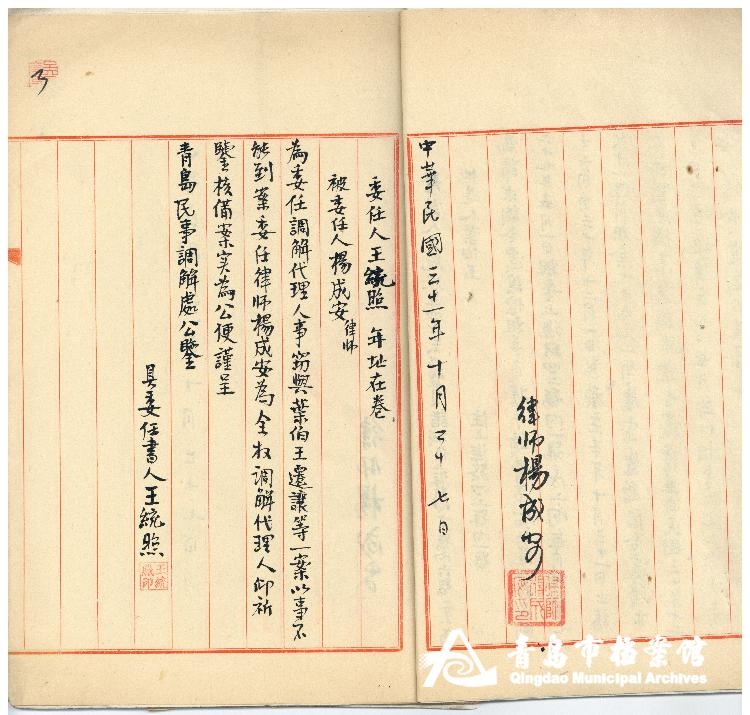 中華民國三十一年十月二十七日
律師楊成安
委任人王統照 年址在卷
被委任人楊成安律師
為委任調解代理人事竊與葉伯王遷讓等一案以事不
能到案委任律師楊成安為全权調解代理人仰祈
鑒核備案实為公便謹呈
青島民事調解處公鑒
具委任書人王統照
青島市檔案館
Qingdao Municipal Archives